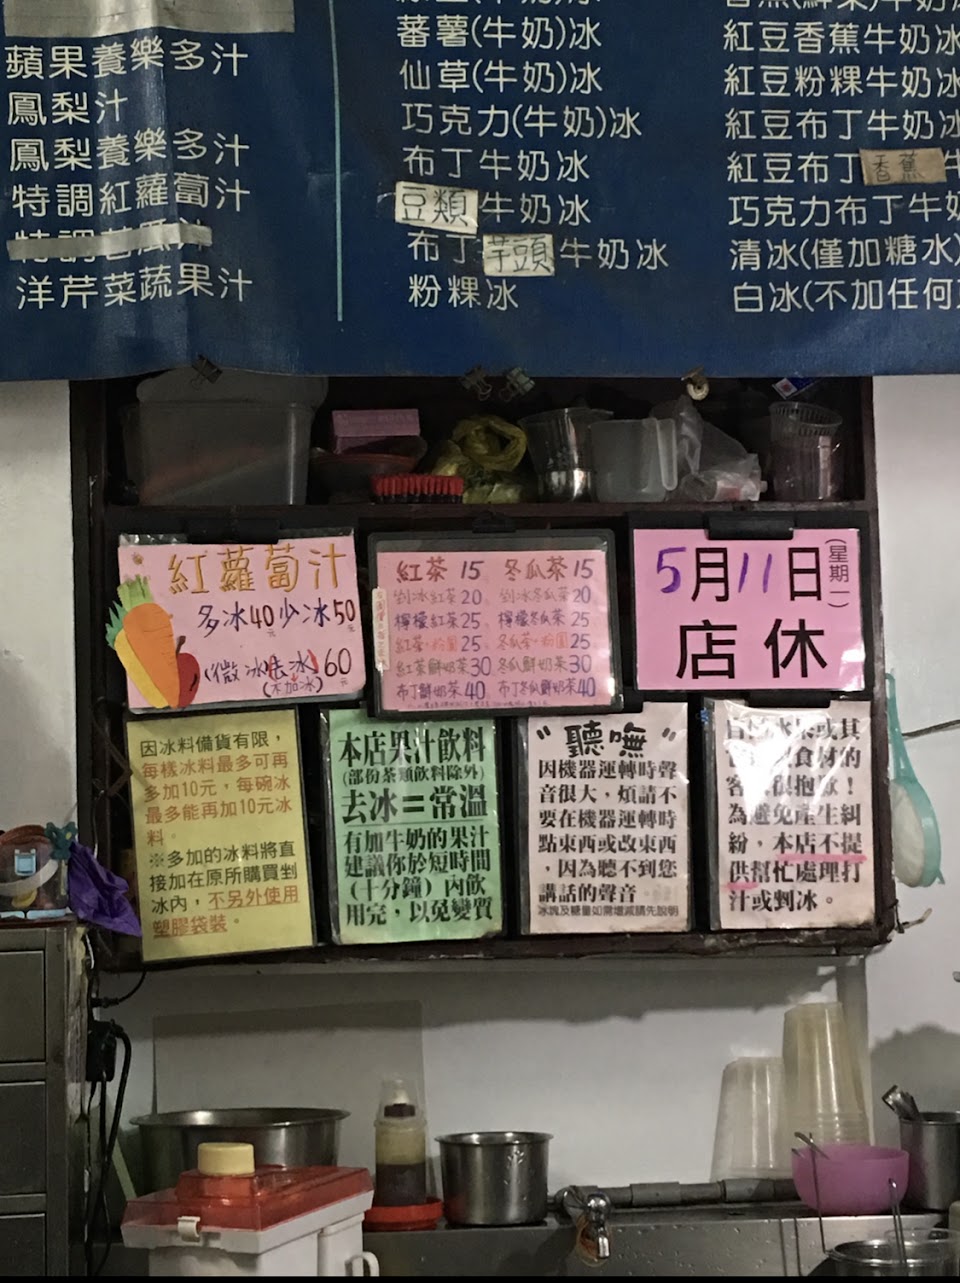 蘋果養樂多汁
鳳梨汁
鳳梨養樂多汁
特調紅蘿蔔汁
洋芹菜蔬果汁
蕃薯(牛奶)冰
仙草(牛奶)冰
巧克力(牛奶)冰
布丁牛奶冰
豆類牛奶冰
布丁芋頭牛奶冰
粉粿冰
紅豆香蕉牛奶冰
紅豆粉粿牛奶冰
紅豆布丁牛奶冰
紅豆布丁香蕉牛
巧克力布丁牛奶
清冰(僅加糖水)
白冰(不加任何
紅蘿蔔汁
多冰40元少冰50元
(微冰去冰)60元
(不加冰)
紅茶 15
剉冰紅茶20
檸檬紅茶25
紅茶·粉圓25
紅茶鮮奶茶30
布丁鮮奶茶40
冬瓜茶15
剉冰冬瓜茶20
檸檬冬瓜茶25
冬瓜茶·粉圓25
冬瓜鮮奶茶30
布丁冬瓜鮮奶茶40
5月11日(星期一)
店休
因冰料備貨有限，
每樣冰料最多可再
多加10元，每碗冰
最多能再加10元冰
料。
※多加的冰料將直
接加在原所購買剉
冰內，不另外使用
塑膠袋裝。
本店果汁飲料
(部份茶類飲料除外)
去冰＝常溫
有加牛奶的果汁
建議你於短時間
(十分鐘)內飲
用完，以免變質
"聽嘸"
因機器運轉時聲
音很大，煩請不
要在機器運轉時
點東西或改東西
，因為聽不到您
講話的聲音。
冰塊及糖量如需增減請先說明
水果或其
食材的
客 很抱歉！
為避免產生糾
紛，本店不提
供幫忙處理打
汁或剉冰。